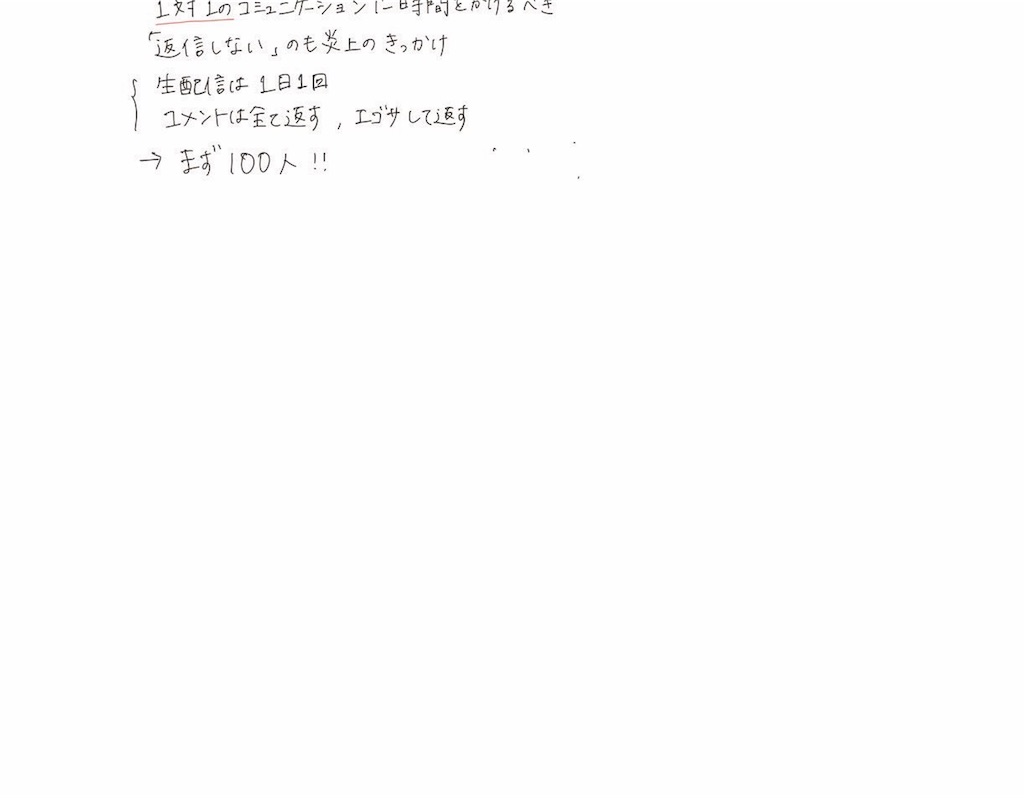 1対1のコミュニケーションに時間をかけるべき
「返信しない」のも炎上のきっかけ
生配信は1日1回
コメントは全て返す,エゴサして返す
→ まず100人!!